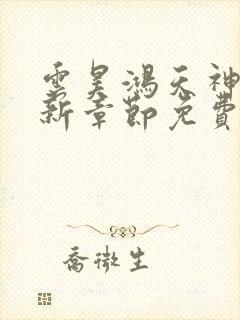 雲昊鴻天神
新章節免費
喬微生